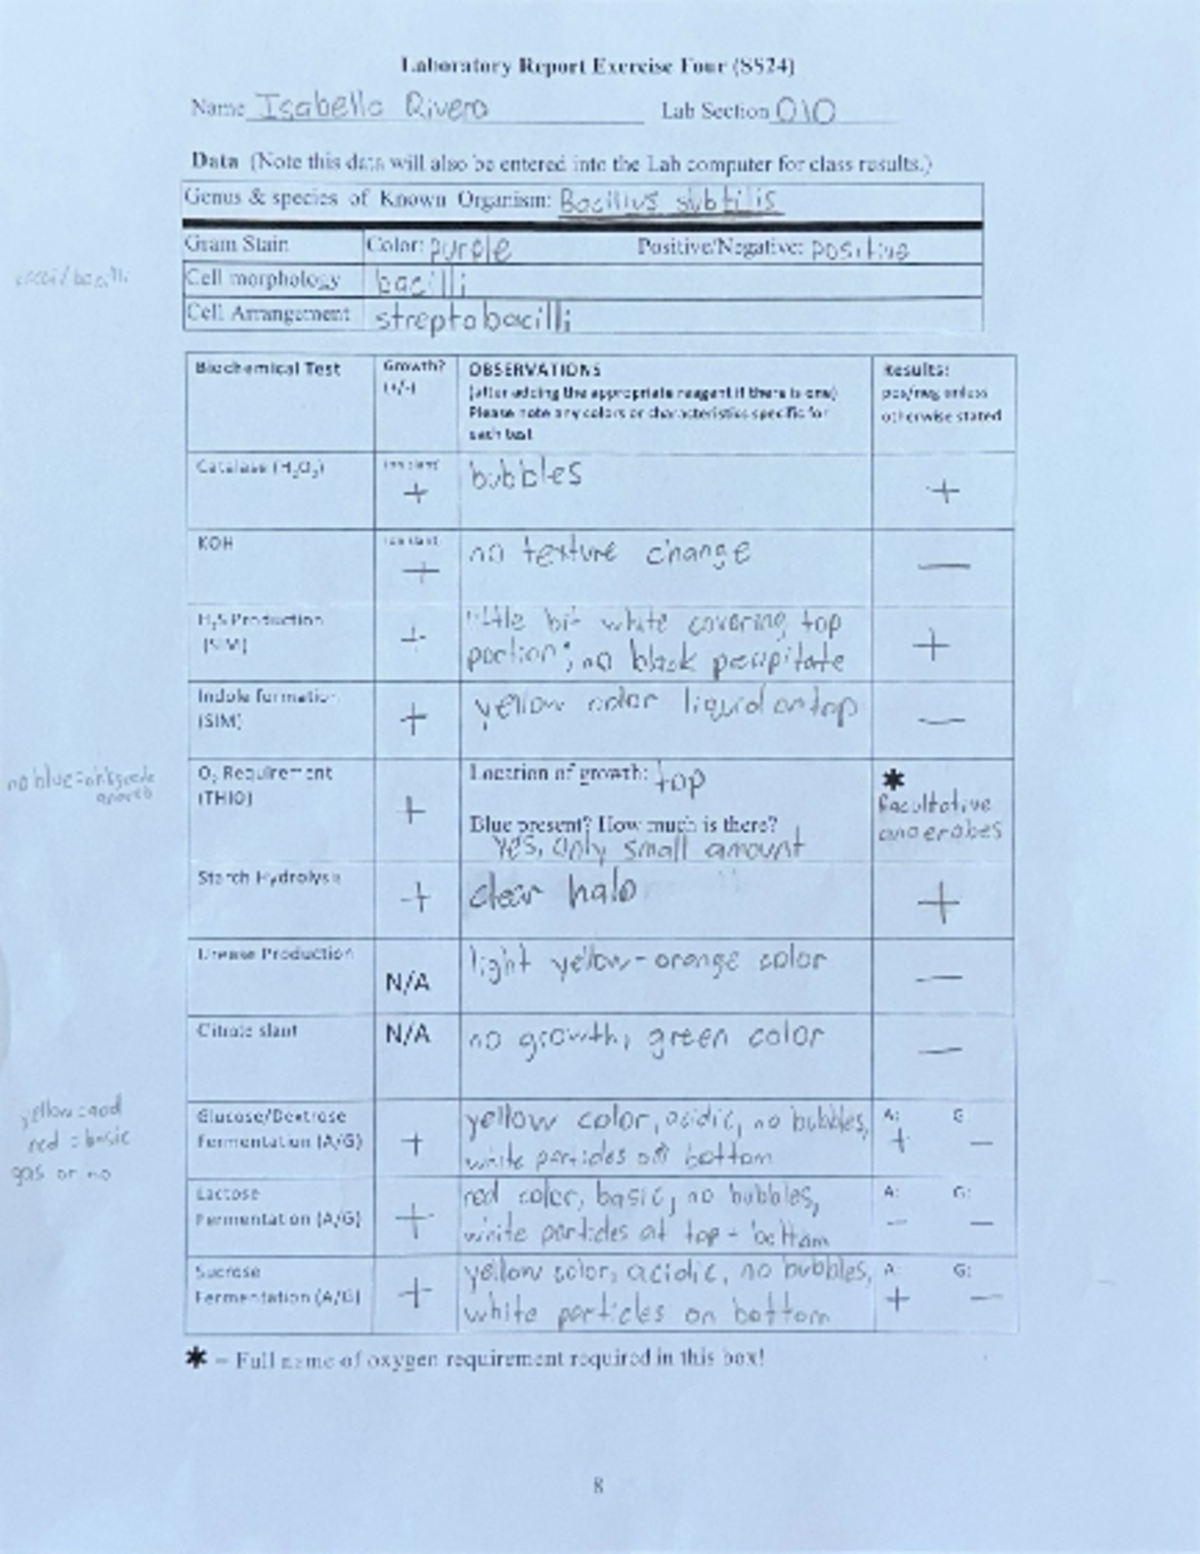 Laboratory Report Exercise Four (SS24)
Name Isabella Rivera Lab Section 010
Data (Note this data will also be entered into the Lab computer for class results.)
Genus & species of Known Organism: Bacillus subtilis
Gram Stain Color: purple Positive/Negative: positive
cocci/bacilli
Cell morphology bacilli
Cell Arrangement streptobacilli
Biochemical Test Growth? (+/-) OBSERVATIONS (after adding the appropriate reagent if there is one) Please note any colors or characteristics specific for each test Results: pos/neg unless otherwise stated
Catalase (H₂O₂) + bubbles +
KOH + no texture change —
H₂S Production (SIM) + little bit white covering top
portion; no black precipitate +
Indole formation (SIM) + yellow color liquid on top —
O₂ Requirement (THIO) + Location of growth: top
Blue present? How much is there?
yes, only small amount
* facultative
anaerobes
no blue =
Starch Hydrolysis + clear halo +
Urease Production N/A light yellow-orange color —
Citrate slant N/A no growth, green color —
yellow = acid
red = basic
gas or no
Glucose/Dextrose Fermentation (A/G) + yellow color, acidic, no bubbles,
white particles on bottom A: + G: —
Lactose Fermentation (A/G) + red color, basic, no bubbles,
white particles at top + bottom A: — G: —
Sucrose Fermentation (A/G) + yellow color, acidic, no bubbles,
white particles on bottom A: + G: —
* = Full name of oxygen requirement required in this box!
8